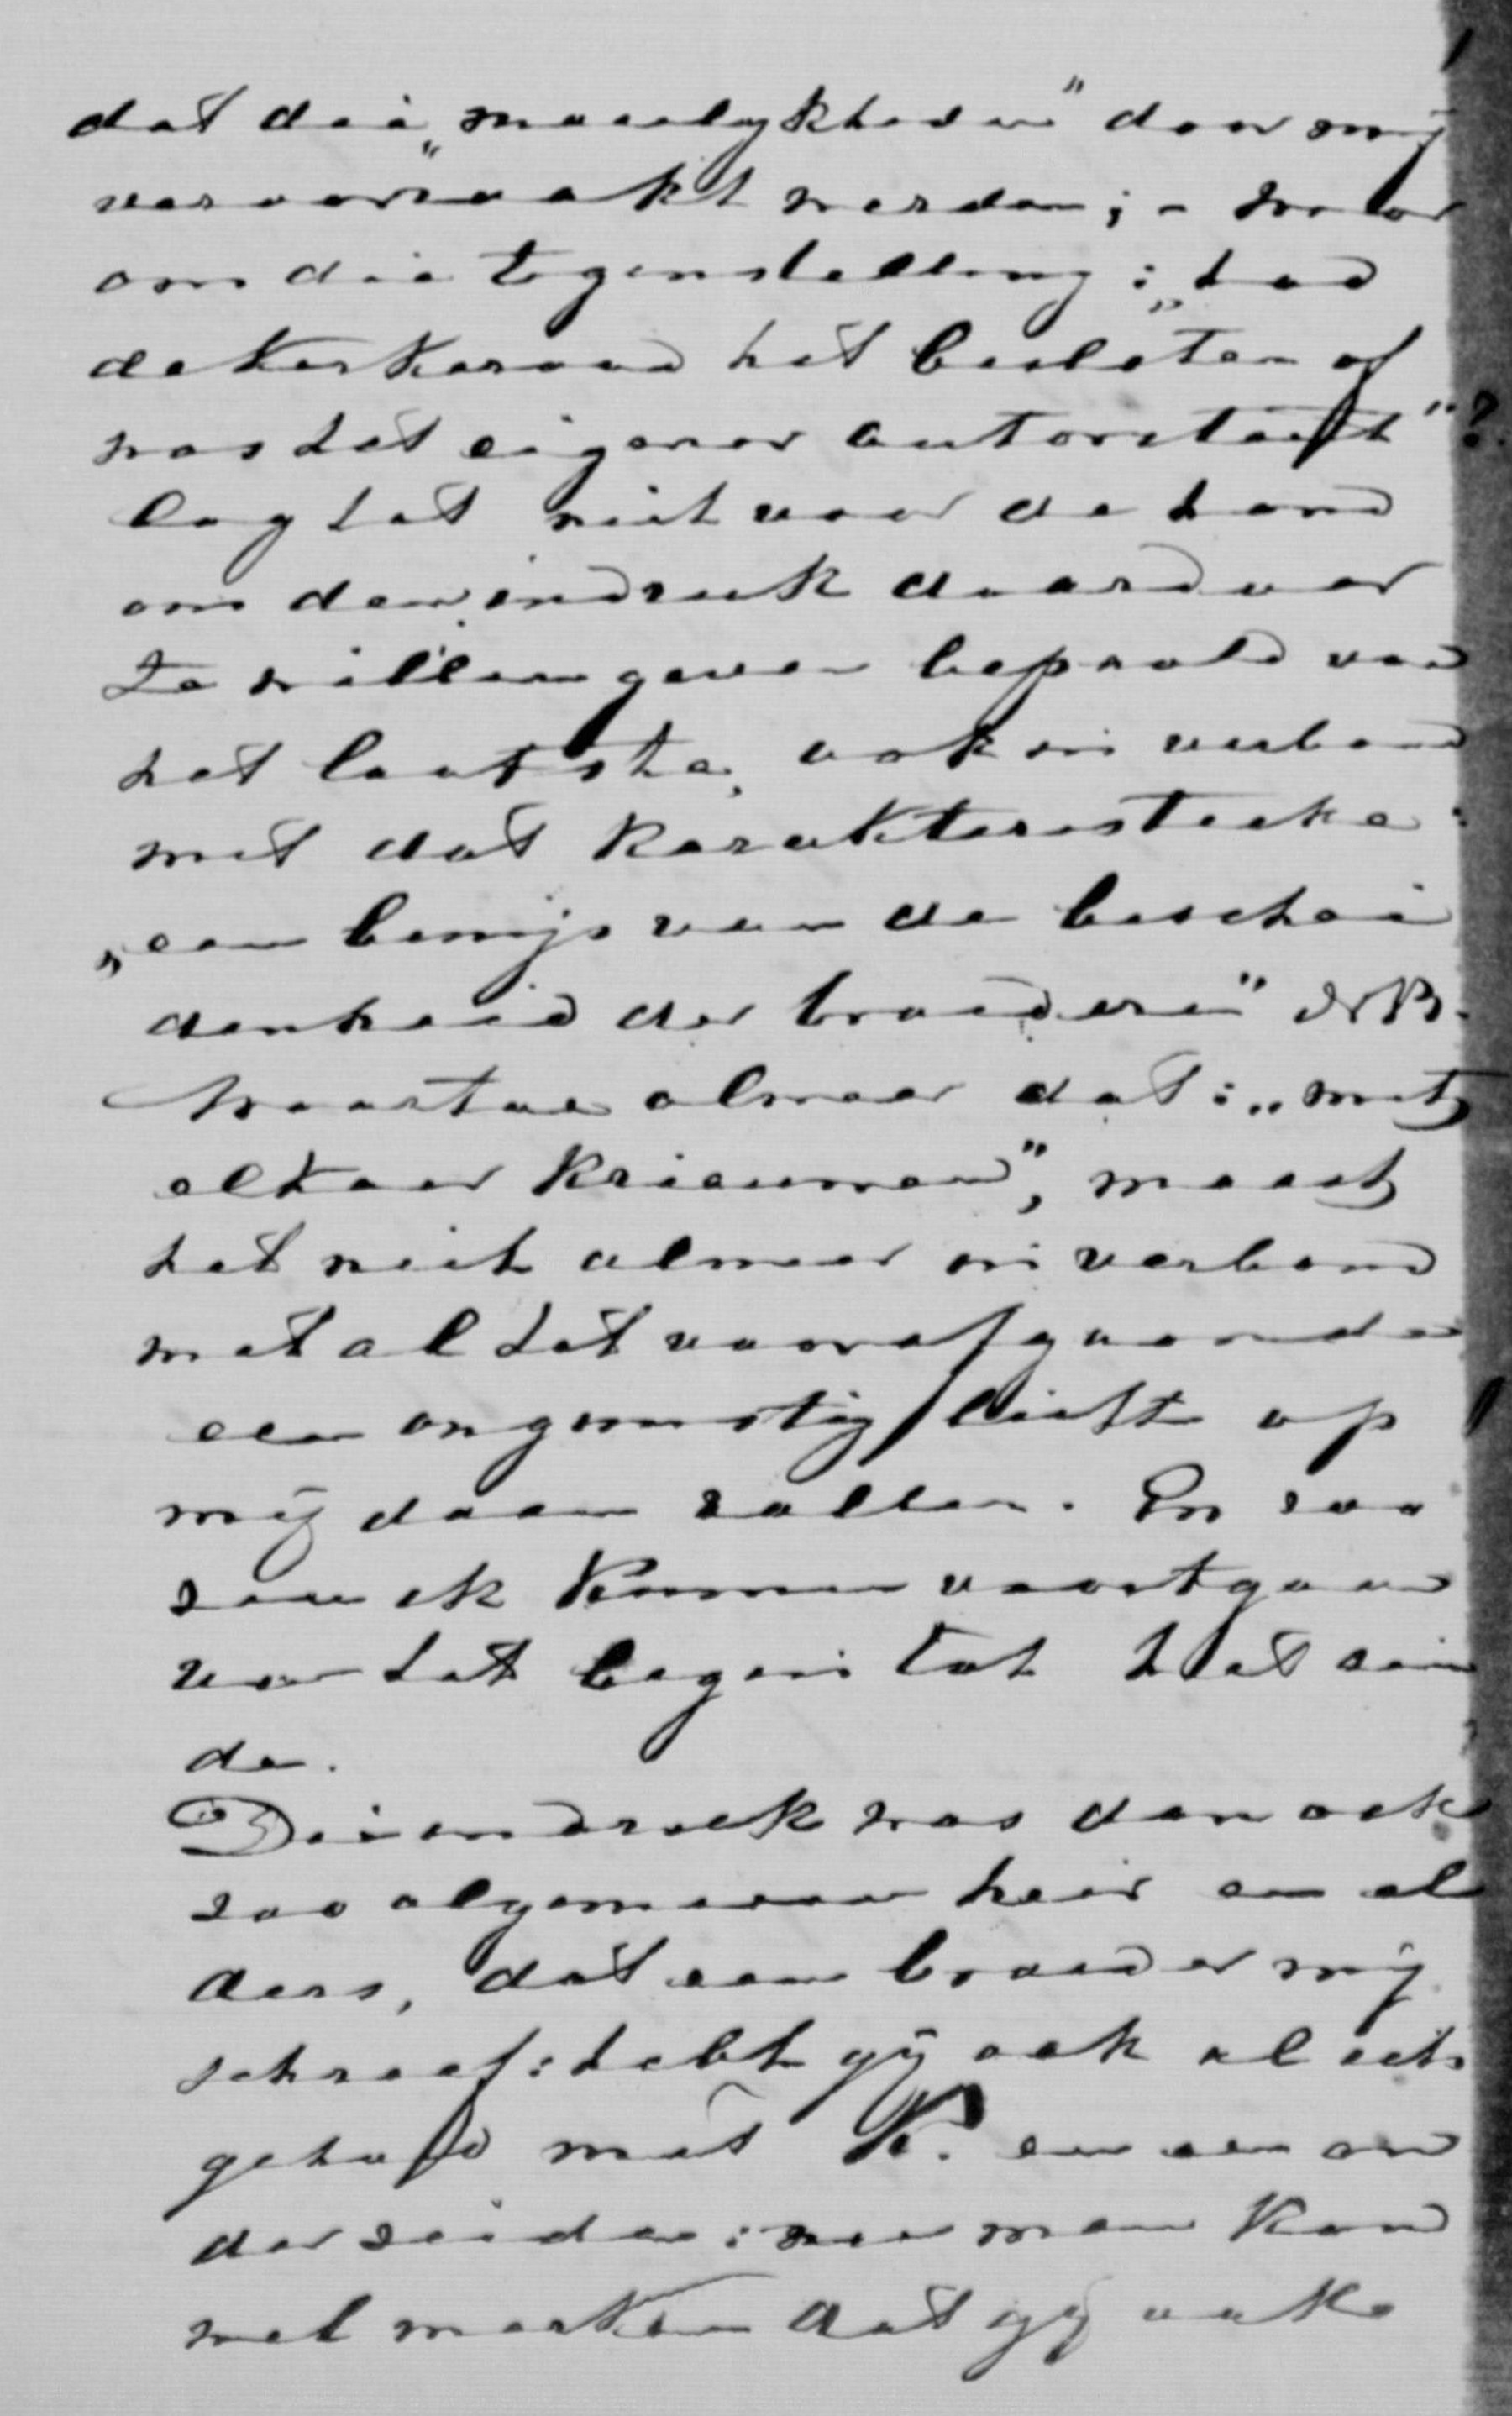 dat die „moeielykheden" door mij
veroorzaakt werden; - waar
om die tegenstelling: „had
de Kerkeraad het besloten of
was het eigener autoriteit"?
lag het niet voor de hand
om den indruk daardoor
te willen geven bepaald van
het laatste, ook in verband
met dat karakteristieke:
„een bewijs van de beschei
denheid der broederen" NB.
Waartoe alweer dat: „met
elkaar", moest
het niet alweer in verband
met al het voorafgaande
een ongunstig licht op
mij doen vallen. En zoo
zou ik kunnen voortgaan
van het begin tot het ein
de.
Die indruk was dan ook
zoo algemeen hier en el
ders, dat een broeder mij
schreef: hebt gij ook al iets
gehad met K. en een an
der zeide: men kon
wel merken dat gij ook